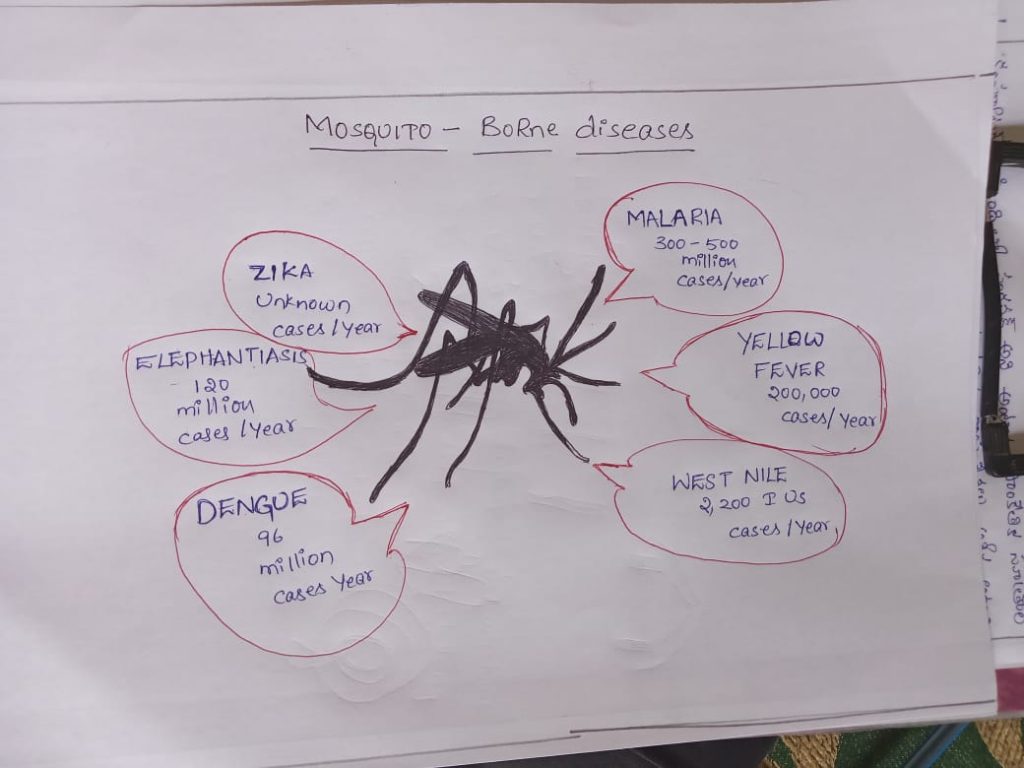 MOSQUITO - BoRne diseases
ZIKA
Unknown
cases/Year
MALARIA
300-500
million
cases/year
ELEPHANTIASIS
120
million
cases/Year
YELLOW
FEVER
200,000
cases/Year
DENGUE
96
million
cases Year
WEST NILE
2,200 I US
cases/Year